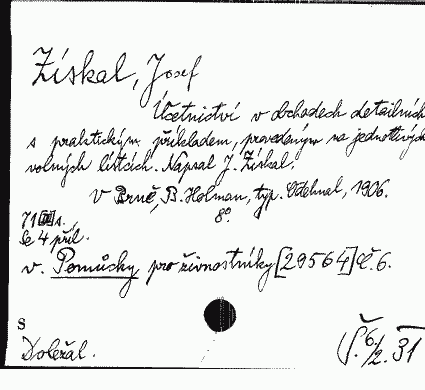 Získal, Josef
Účetnictví v obchodech detailních
s praktickým příkladem, provedeným na jednotlivých
volných lístcích. Napsal J. Získal.
V Brně, B. Holman, typ. Odehnal, 1906.
8°.
71 s.
Se 4 příl.
v. Pomůcky pro živnostníky [29564] č. 6.
S
Doležal.